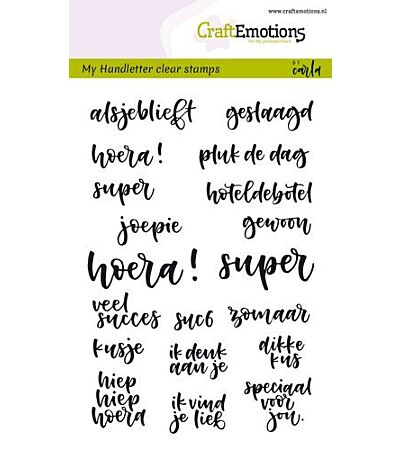 www.craftemotions.nl
CraftEmotions
for the personal touch
My Handletter clear stamps
BY
carla
alsjeblieft geslaagd
hoera! pluk de dag
super hoteldebotel
joepie gewoon
hoera! super
veel
succes suc6 zomaar
kusje ik denk
aan je dikke
kus
hiep
hiep
hoera ik vind
je lief speciaal
voor
jou.